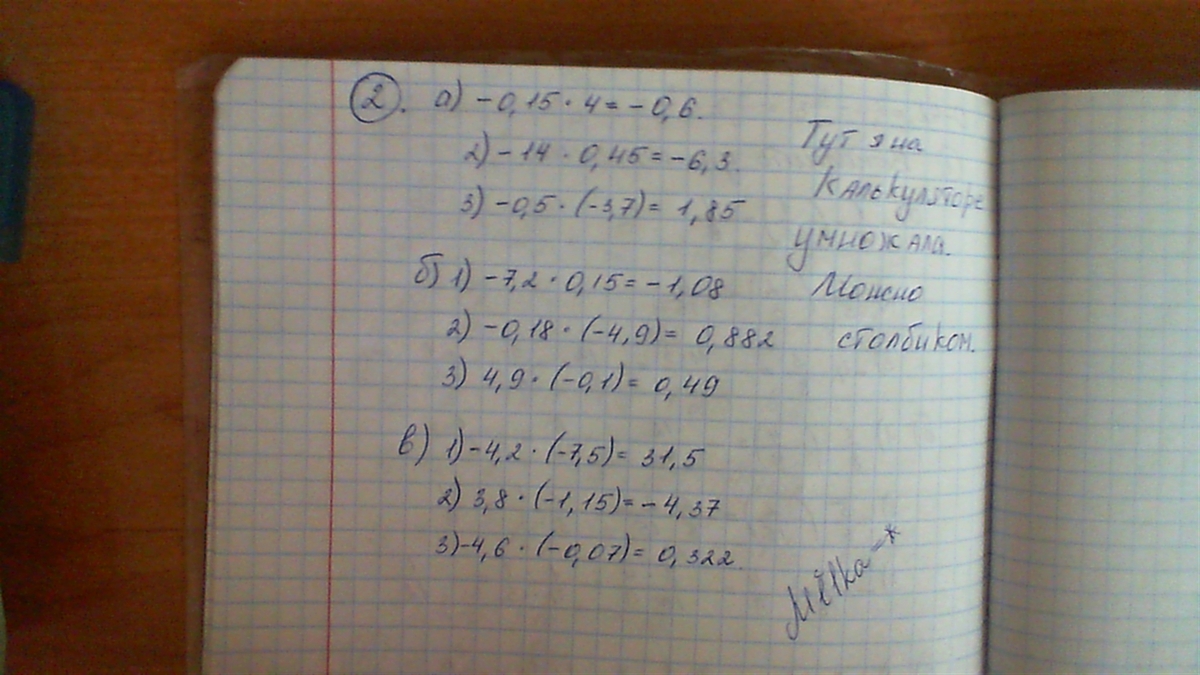 2. а) -0,15 · 4 = -0,6.
2) -14 · 0,45 = -6,3.
3) -0,5 · (-3,7) = 1,85
б) 1) -7,2 · 0,15 = -1,08
2) -0,18 · (-4,9) = 0,882
3) 4,9 · (-0,1) = 0,49
в) 1) -4,2 · (-7,5) = 31,5
2) 3,8 · (-1,15) = -4,37
3) -4,6 · (-0,07) = 0,322
Тут я на
калькуляторе
умножала.
Можно
столбиком.